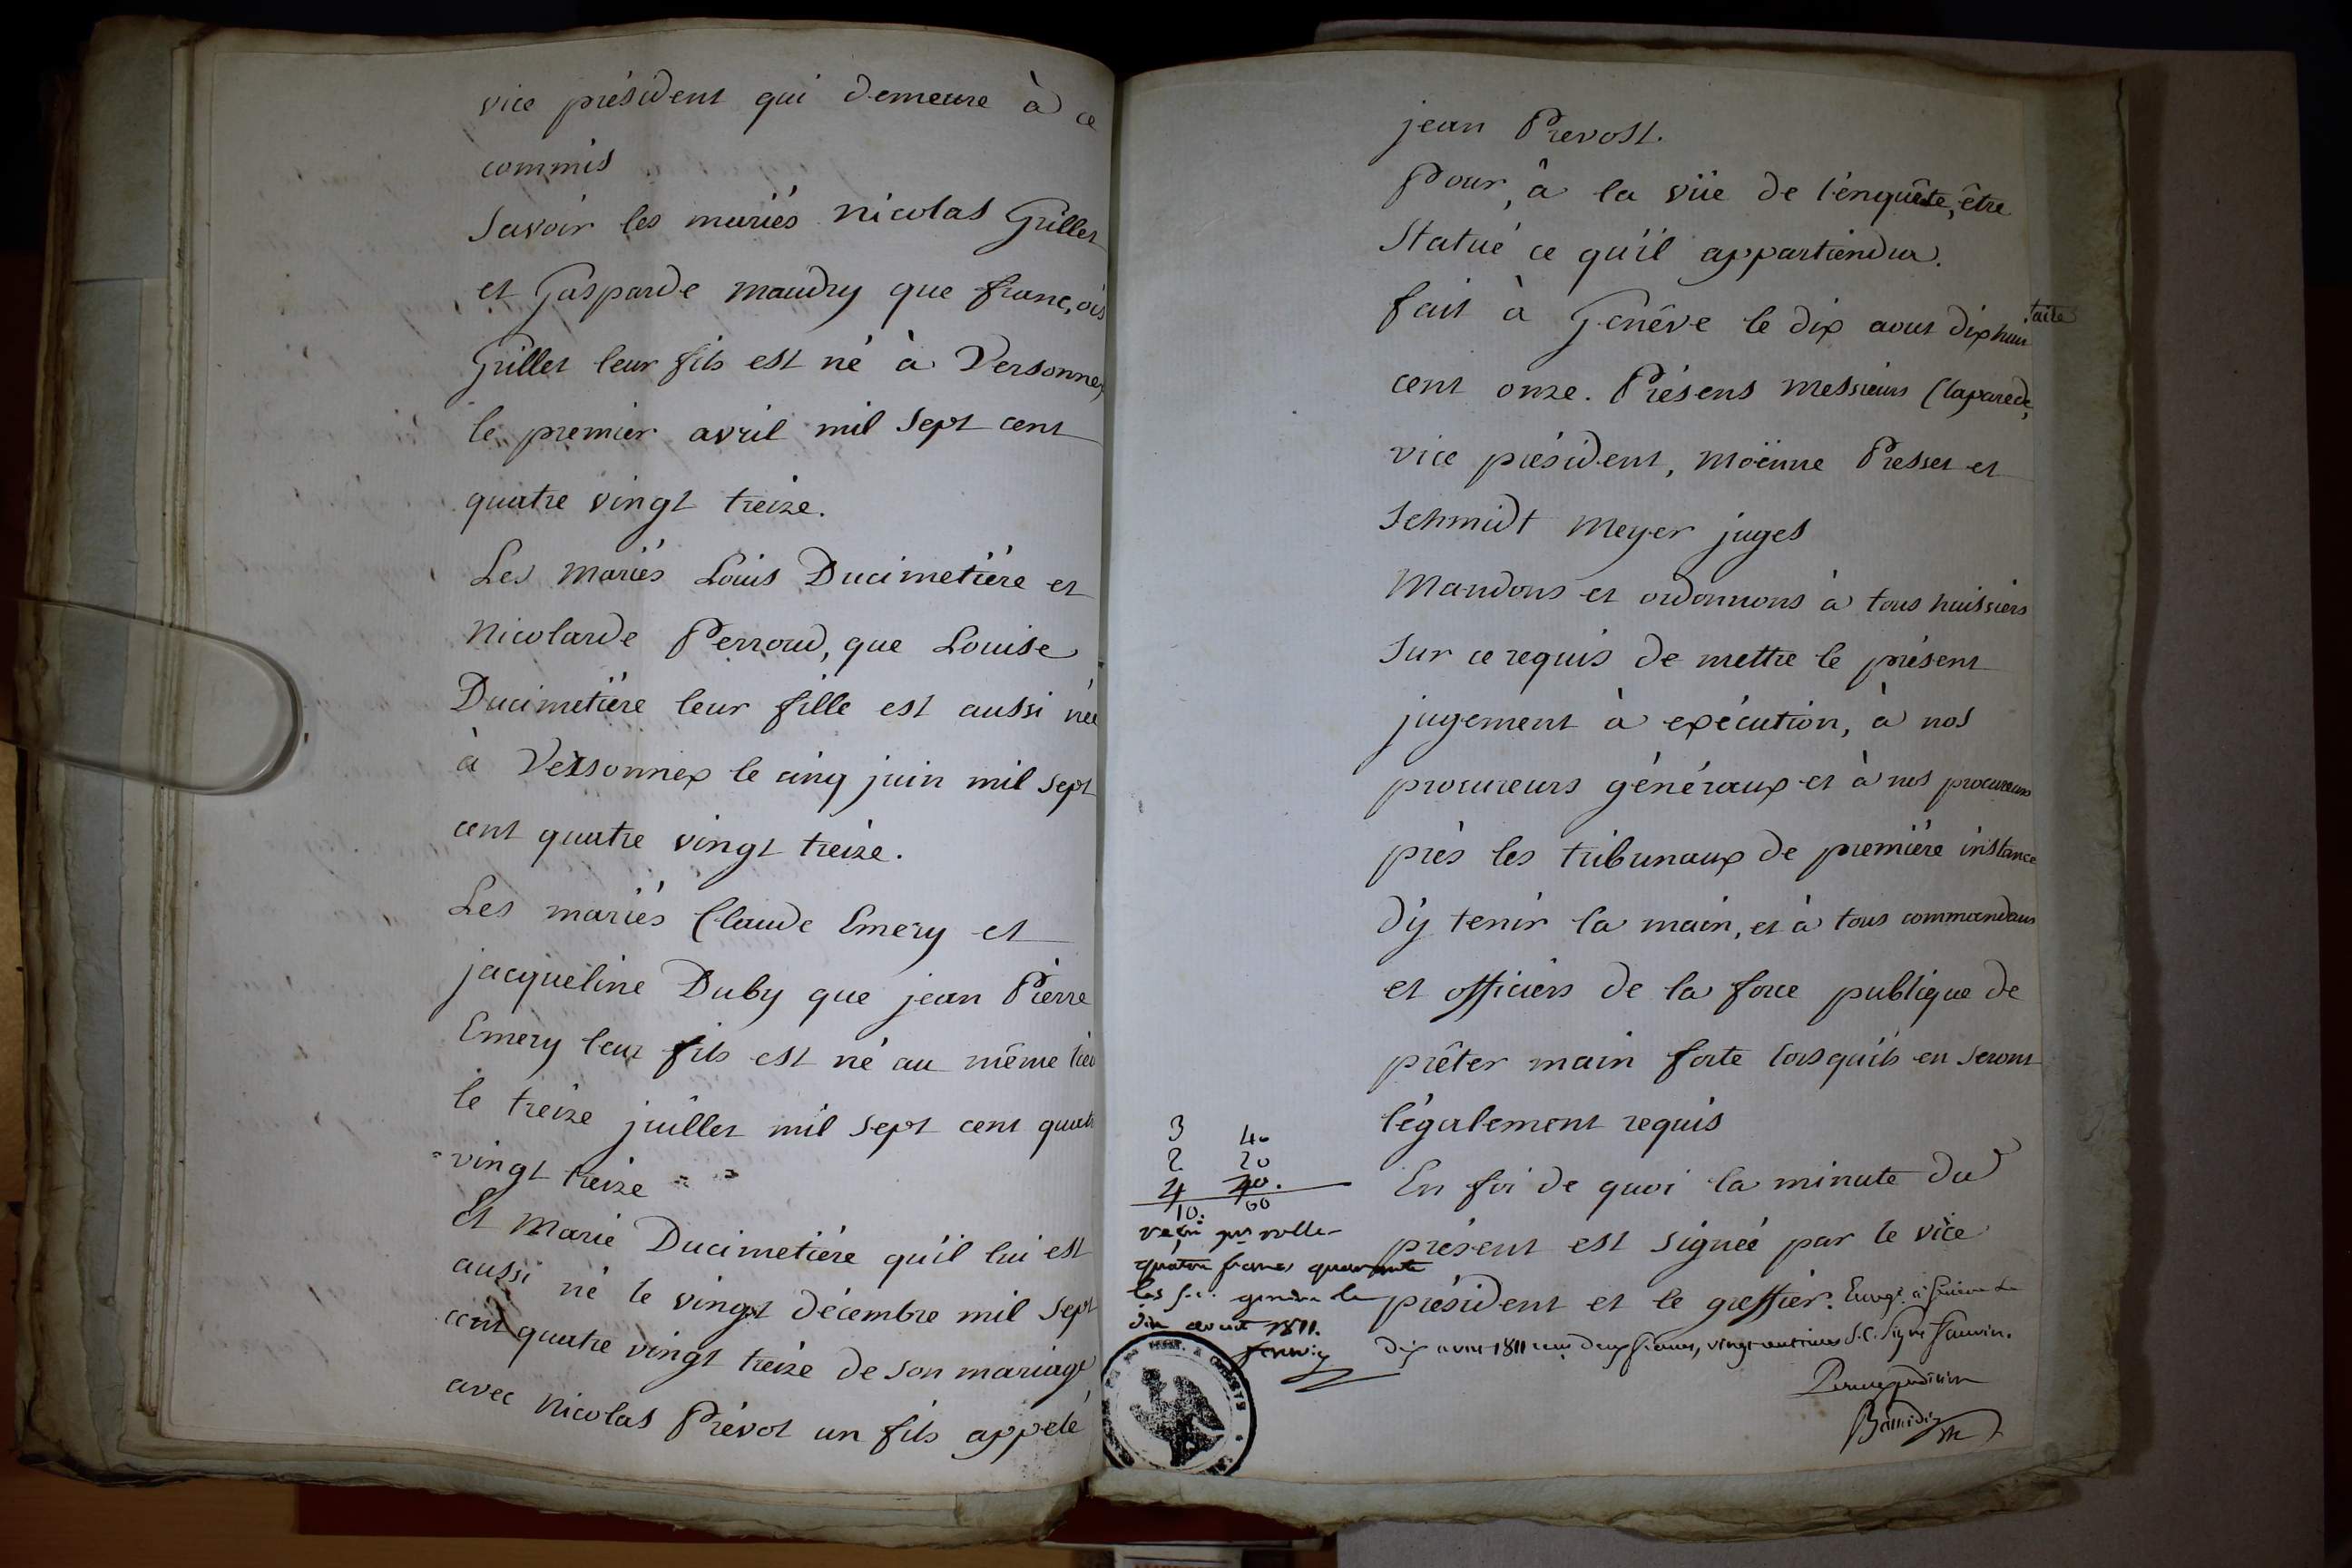 vice président qui demeure à ce
commis
Savoir les mariés nicolas Grillet
et Gasparde maudry que françois
Grillet leur fils est né à Versonnex
le premier avril mil Sept cent
quatre vingt treize.
Les mariés Louis Ducimetière et
Nicolarde Perroud, que Louise
Ducimetière leur fille est aussi née
à Versonnex le cinq juin mil Sept
cent quatre vingt treize.
Les mariés Claude Emery et
jacqueline Duby que jean Pierre
Emery leur fils est né au même lieu
le treize juillet mil Sept cent quatre
vingt treize
Et Marie Ducimetière qu'il lui est
aussi né le vingt décembre mil Sept
cent quatre vingt treize de son mariage
avec Nicolas Prévot un fils appelé
jean Prevost.
Pour, à la vüe de l'enquête, être
Statué ce qu'il appartiendra.
fait à Genêve le dix aout dix huit
cent onze. Présens Messieurs Claparede,
vice président, Moënne Presset et
Schmidt Meyer juges
Mandons et ordonnons à tous huissiers
Sur ce requis de mettre le présent
jugement à exécution, à nos
procureurs généraux et à nos procureurs
près les tribunaux de première instance
d'y tenir la main, et à tous commandans
et officiers de la force publique de
prêter main forte lorsqu'ils en seront
légalement requis
En foi de quoi la minute du
présent est signée par le vice
président et le greffier. Enregé à Genève le
dix aout 1811 reçu deux francs, vingt centimes S.C. Signé
3 40
2 20
4 40.
10. 00
reçu pr rolle
quatre francs quarante
genève le
dix aout 1811.